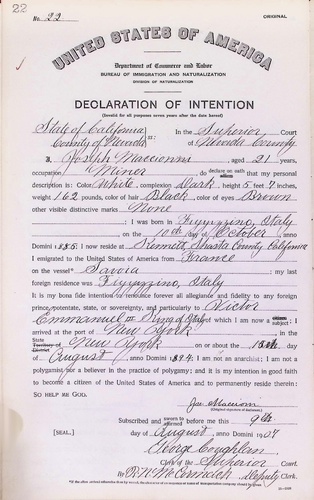 22
No. 22
ORIGINAL
UNITED STATES OF AMERICA
Department of Commerce and Labor
BUREAU OF IMMIGRATION AND NATURALIZATION
DIVISION OF NATURALIZATION
DECLARATION OF INTENTION
(Invalid for all purposes seven years after the date hereof)
State of California
County of Nevada ss: In the Superior Court
of Nevada County
I, Joseph Maccionni, aged 21 years,
occupation Miner, do declare on oath that my personal
description is: Color White, complexion Dark, height 5 feet 7 inches,
weight 162 pounds, color of hair Black, color of eyes Brown
other visible distinctive marks None
I was born in Italy
on the 10th day of October, anno
Domini 1885; I now reside at Kennett Shasta County California
I emigrated to the United States of America from France
on the vessel Savoia; my last
foreign residence was Italy
It is my bona fide intention to renounce forever all allegiance and fidelity to any foreign
prince, potentate, state, or sovereignty, and particularly to Victor
Emmanuel III King of Italy, of which I am now a subject; I
arrived at the port of New York, in the
State Territory District of New York on or about the day
of August, anno Domini; I am not an anarchist; I am not a
polygamist nor a believer in the practice of polygamy; and it is my intention in good faith
to become a citizen of the United States of America and to permanently reside therein:
SO HELP ME GOD.
(Original signature of declarant.)
Subscribed and sworn to before me this 9th
[SEAL.] day of August, anno Domini 1907
George Coughlan
Clerk of the Superior Court.
By R. N. McCormick, Deputy Clerk.